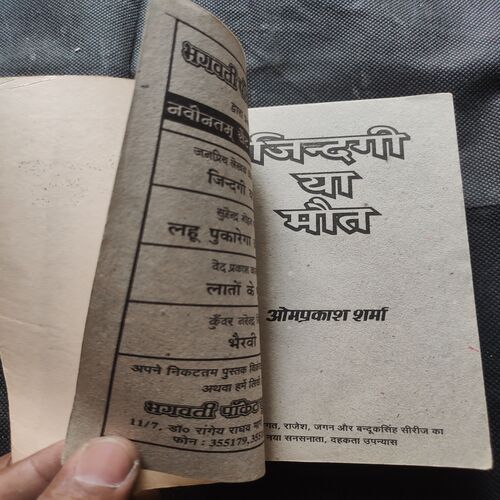 भगवती
द्वारा
नवीनतम
जनप्रिय लेखक
जिन्दगी
सुरेन्द्र मोहन
लहू पुकारेगा
वेद प्रकाश
लातों के
कुँवर नरेन्द्र
भैरवी
अपने निकटतम पुस्तक
अथवा हमें लिखें
भगवती पॉकेट
11/7, डॉ० रांगेय राघव मार्ग
फोन : 355179,
जिन्दगी
या
मौत
ओमप्रकाश शर्मा
गत, राजेश, जगन और बन्दूकसिंह सीरीज का
नया सनसनाता, दहकता उपन्यास